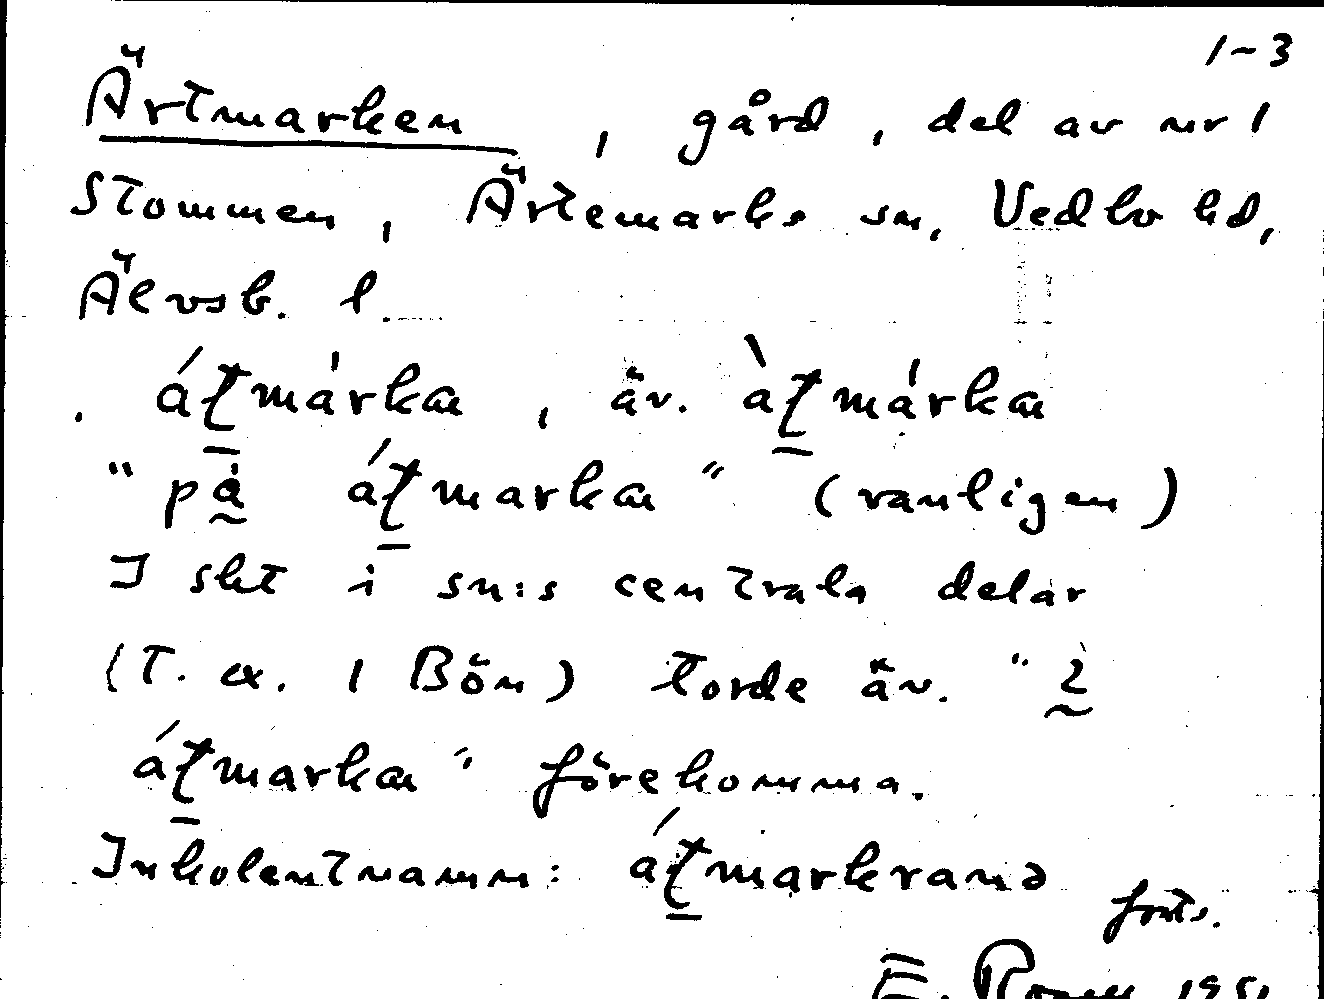 1-3
Ärtmarken, gård, del av nr 1
Stommen, Ärtemarks sn, Vedbo hd,
Älvsb. l.
áʈmárka, äv. àʈmárka
"på áʈmarka" (vanligen)
I skt i sn:s centrala delar
(t. ex. 1 Bön) torde äv. "
áʈmarka" förekomma.
Inkolentnamn: áʈmarkrana
forts.
E. 195